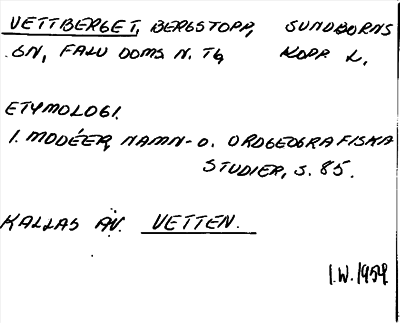 VETTBERGET, BERGSTOPP, SUNDBORNS
SN, FALU DOMS N. TG, KOPP L.
ETYMOLOGI.
I. MODÉER, NAMN- O. ORDGEOGRAFISKA
STUDIER, S. 85.
KALLAS ÄV. VETTEN.
I.W. 1959.